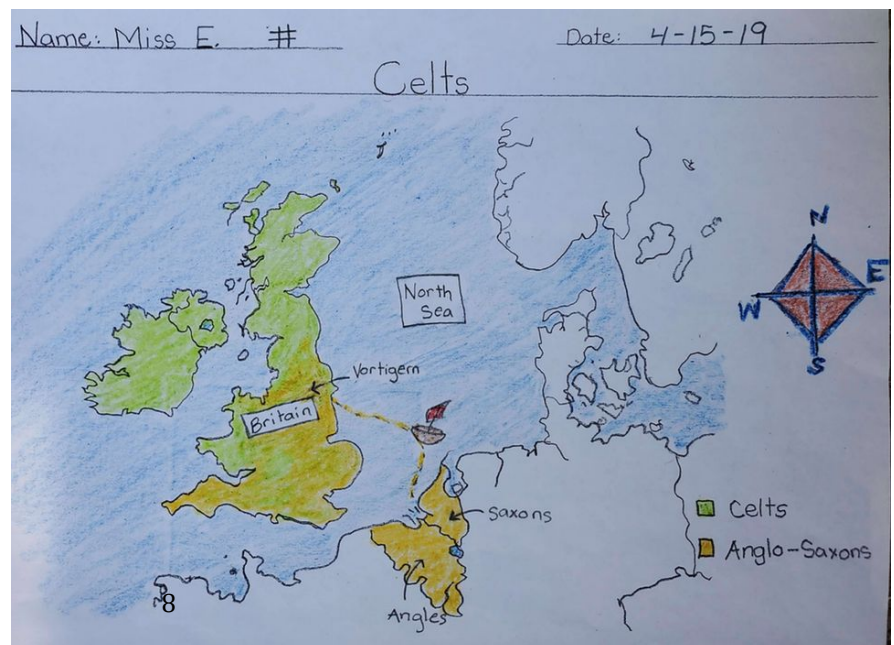 Name: Miss E. #
Date: 4-15-19
Celts
N
W E
S
North
Sea
Vortigern
Britain
Saxons
Angles
Celts
Anglo-Saxons
8